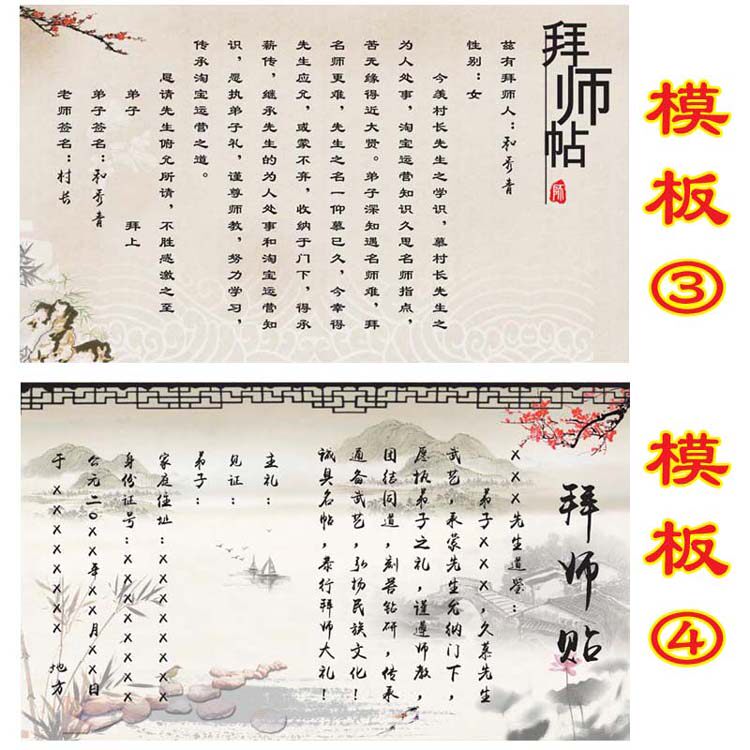 拜师帖
师
兹有拜师人：和秀青
性别：女
今羡村长先生之学识，慕村长先生之
为人处事，淘宝运营知识久思名师指点，
苦无缘得近大贤。弟子深知遇名师难，拜
名师更难，先生之名一仰慕已久，今幸得
先生应允，或蒙不弃，收纳于门下，得承
薪传，继承先生的为人处事和淘宝运营知
识，愿执弟子礼，谨尊师教，努力学习，
传承淘宝运营之道。
恳请先生俯允所请，不胜感激之至
弟子 拜上
弟子签名：和秀青
老师签名：村长
模板③
拜师贴
XXX先生道鉴：
弟子XXX，久慕先生
武艺，承蒙先生允纳门下，
愿执弟子之礼，谨遵师教，
团结同道，刻苦钻研，传承
通备武艺，弘扬民族文化！
诚具名帖，恭行拜师大礼！
主礼：
见证：
弟子：
家庭住址：XXXXXX
身份证号：XXXXXX
公元二〇XX年XX月XX日
于XXXXXXX 地方
模板④